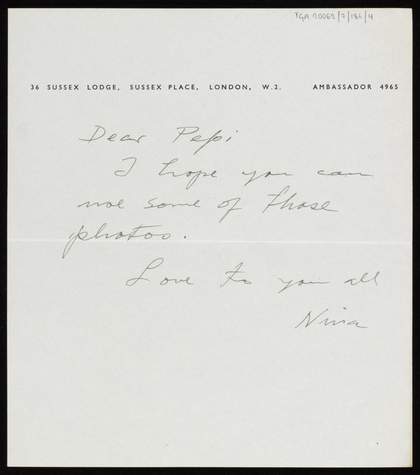 TGA 20069/7/186/4
36 SUSSEX LODGE, SUSSEX PLACE, LONDON, W.2. AMBASSADOR 4965
Dear Pepi
I hope you can
use some of those
photos.
Love to you all
Nina